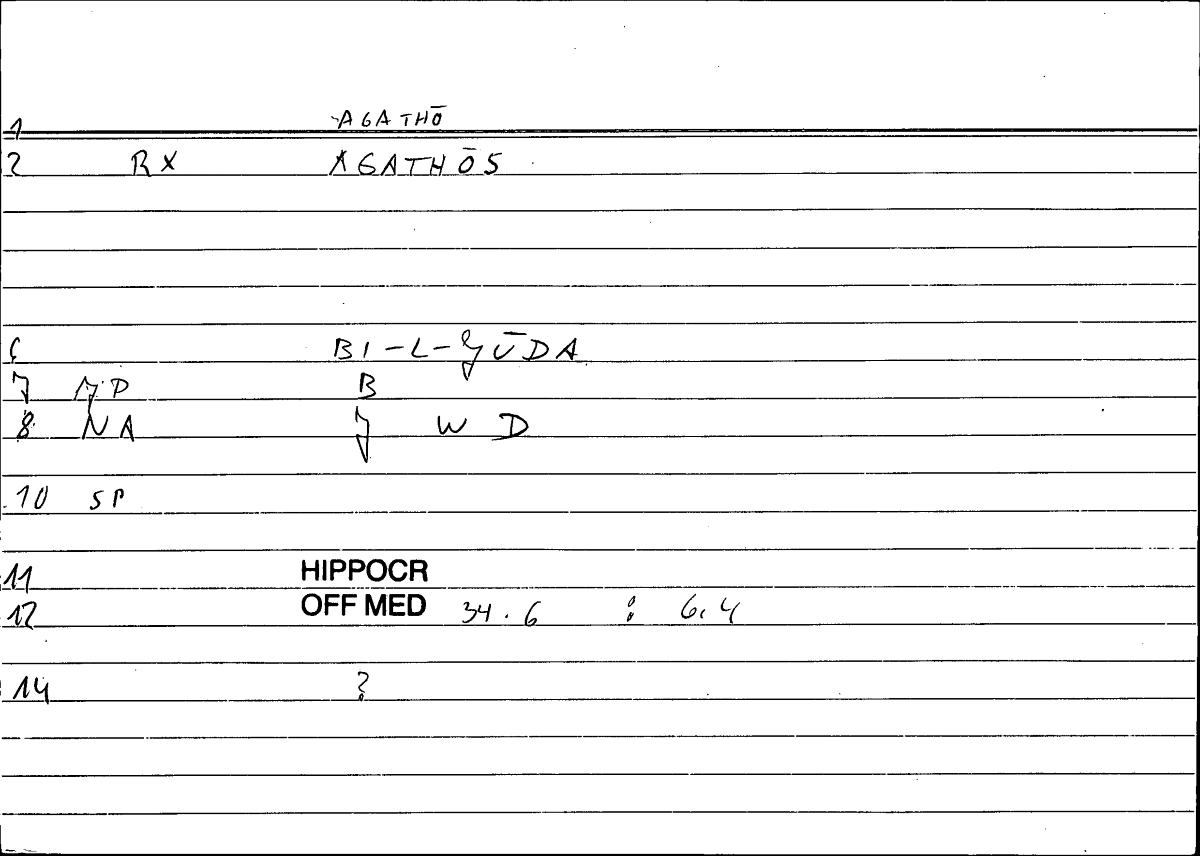 1 AGATHŌ
2 RX AGATHŌS
6 BI-L-ǦŪDA
7 B
8 NA Ǧ W D
10 SP
11 HIPPOCR
12 OFF MED 34.6 : 6,4
14 ?